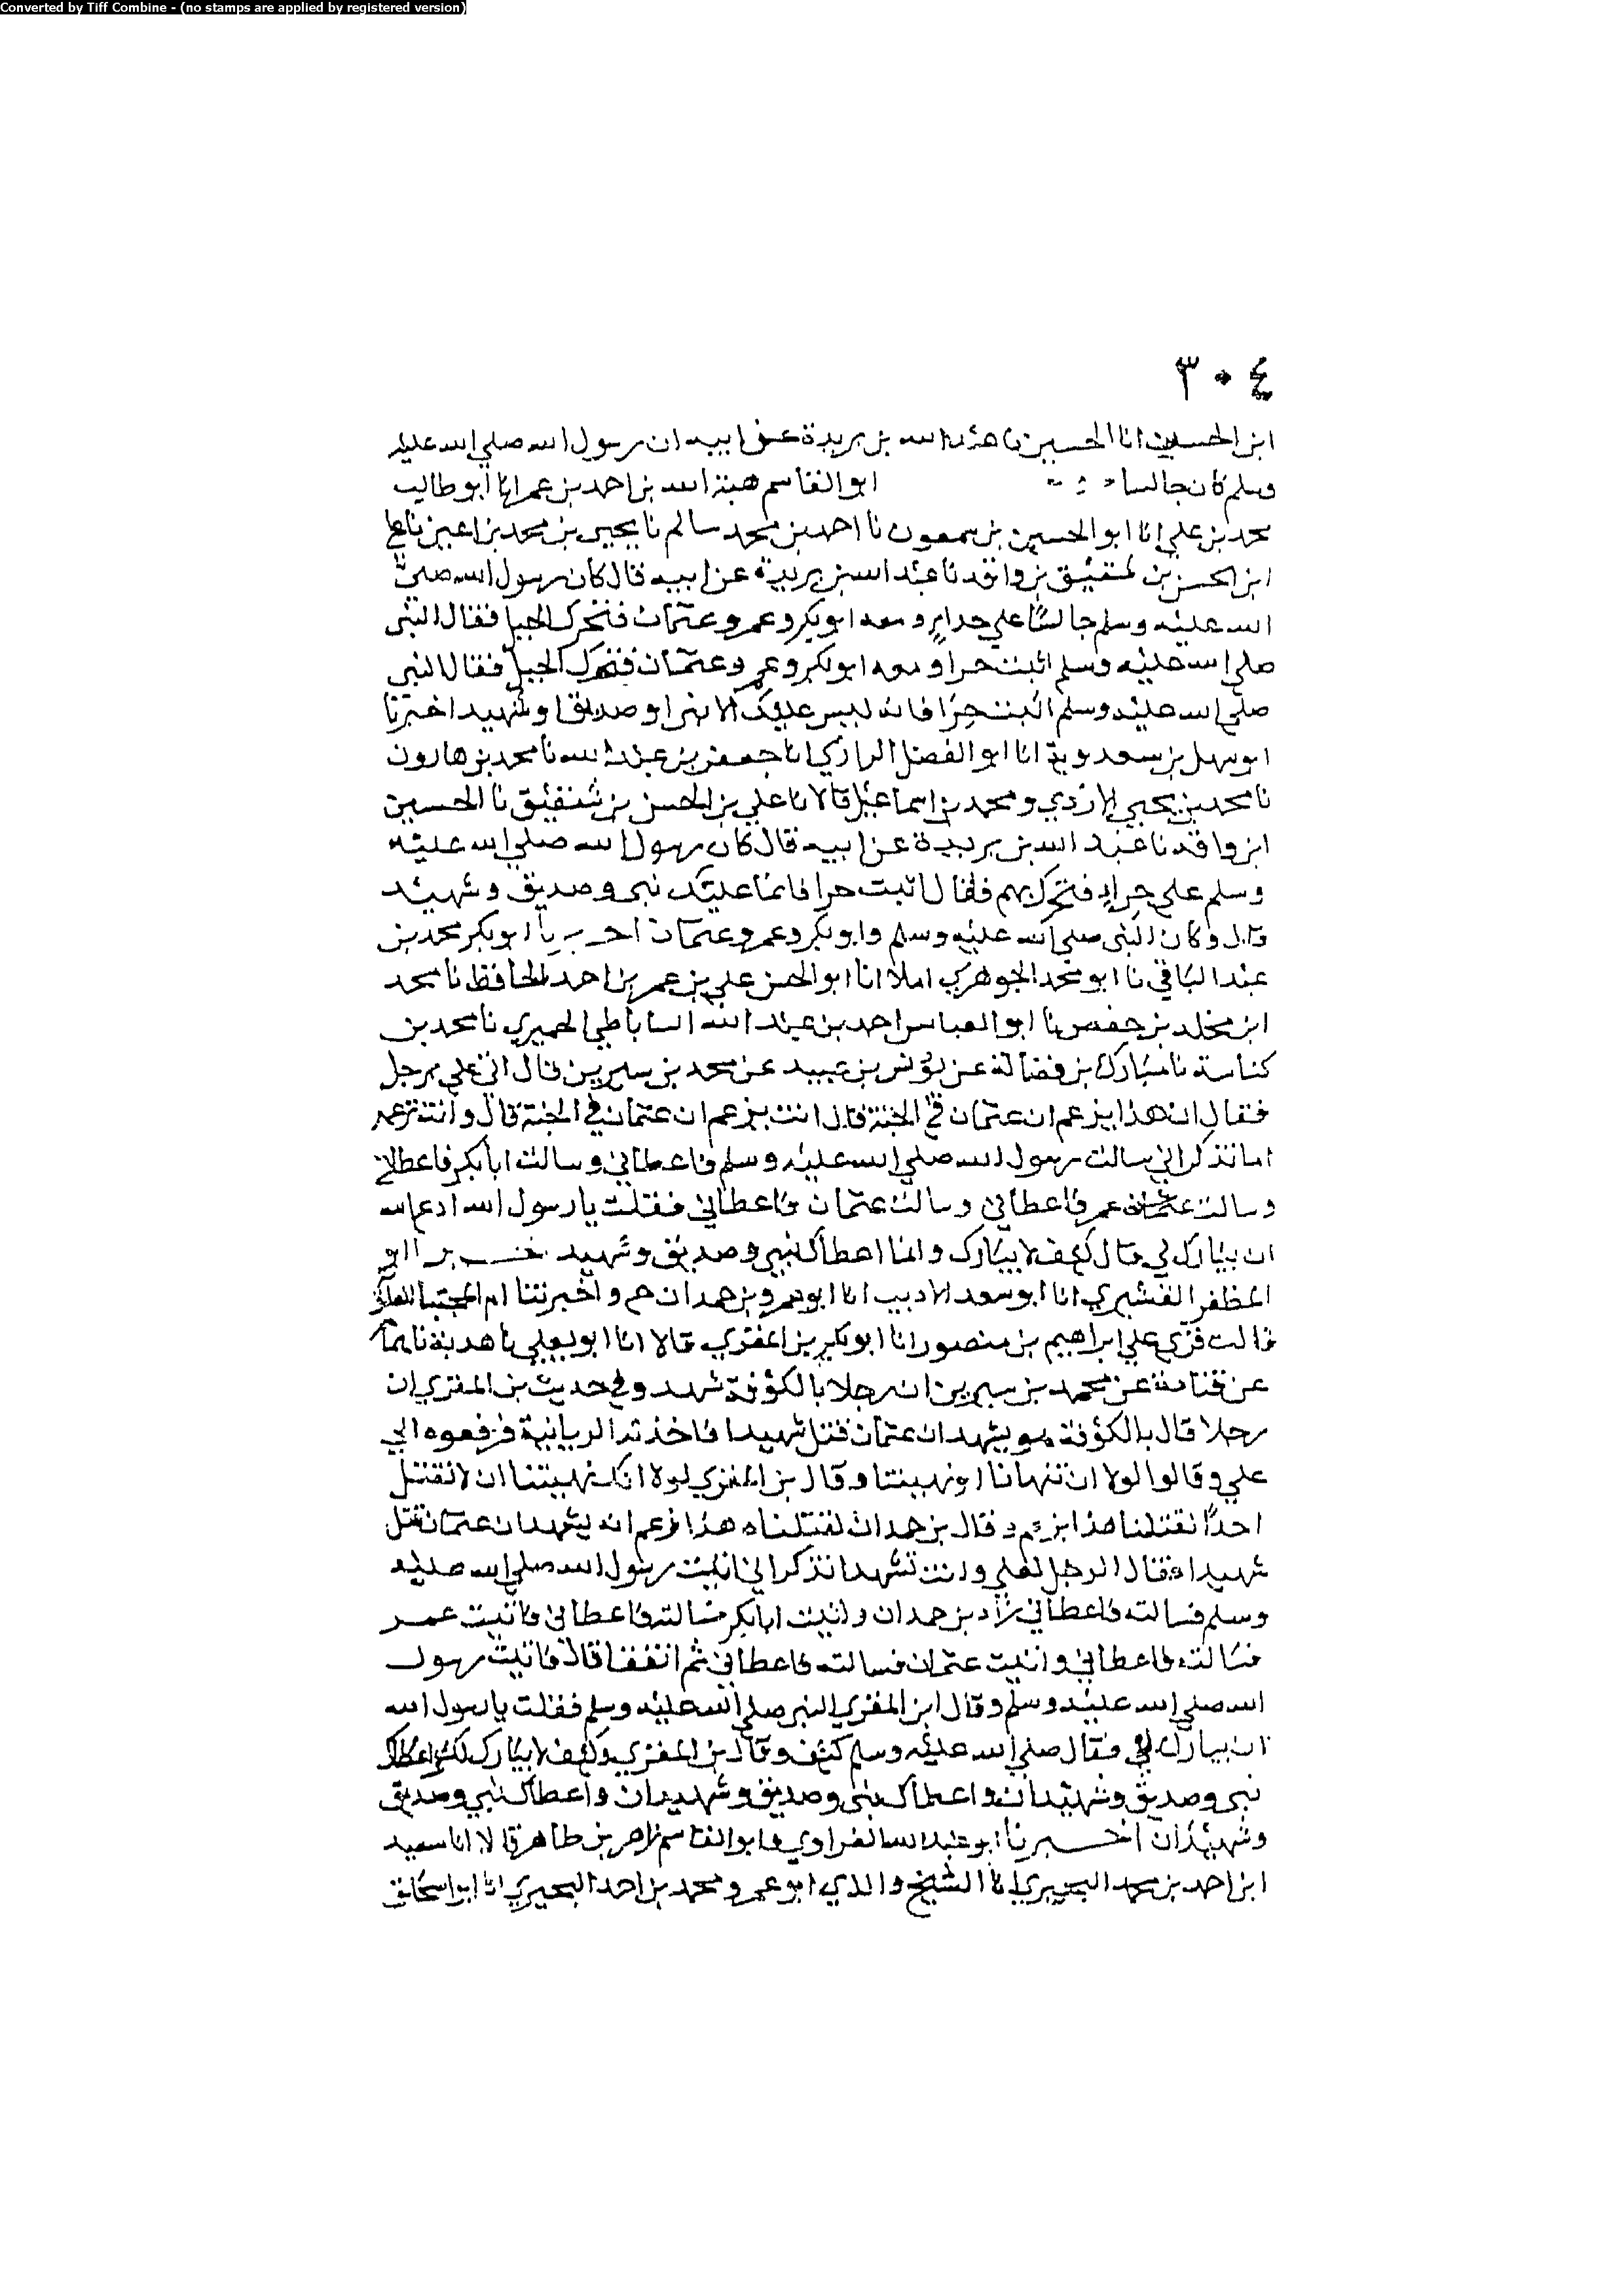 Converted by Tiff Combine - (no stamps are applied by registered version)
٣٠٤
ابن الحسين انا الحسين نا عبد الله بن بريدة عن ابيه ان رسول الله صلي الله عليه
وسلم كان جالسا ابو القاسم هبة الله بن احمد بن عمر انا ابو طالب
محمد بن علي انا ابو الحسين بن سمعون نا احمد بن محمد سالم نا يحيى بن محمد بن اعين نا علي
ابن الحسن بن شقيق بن واقد نا عبد الله بن بريدة عن ابيه قال كان رسول الله صلي
الله عليه وسلم جالسًا علي حراءٍ ومعه ابو بكر وعمر وعثمان فتحرك الجبل فقال النبى
صلي الله عليه وسلم اثبت حرا ومعه ابو بكر وعمر وعثمان فتحرك الجبل فقال النبى
صلي الله عليه وسلم اثبت حِرًا فانه ليس عليك الا نبي او صديق او شهيد اخبرنا
ابو سهل بن سعدوية انا ابو الفضل الرازي انا جعفر بن عبد الله نا محمد بن هارون
نا محمد بن يحيي الازدي ومحمد بن اسماعيل قالا نا علي بن الحسن بن شقيق نا الحسين
ابن واقد نا عبد الله بن بريدة عن ابيه قال كان رسول الله صلي الله عليه
وسلم علي حراءٍ فتحرك بهم فقال اثبت حرا فانما عليك نبى وصديق وشهيد
قال وكان النبى صلي الله عليه وسلم وابو بكر وعمر وعثمان اخبرنا ابو بكر محمد بن
عبد الباقي نا ابو محمد الجوهري املا انا ابو الحسن علي بن عمر بن احمد الحافظ نا محمد
ابن مخلد بن حفص نا ابو العباس احمد بن عبد الله الساباطي الحميري نا محمد بن
كناسة نا مبارك بن فضالة عن يونس بن عبيد عن محمد بن سيرين قال اتي علي برجل
فقال ان هذا يزعم ان عثمان في الجنة قال انت تزعم ان عثمان في الجنة قال وانت تزعم
اما تذكر اني سالت رسول الله صلي الله عليه وسلم فاعطاني وسالت ابا بكر فاعطاني
وسالت عمر فاعطاني وسالت عثمان فاعطاني فقلت يا رسول الله ادع الله
ان يبارك لي قال كيف لا يبارك وانما اعطاك نبي وصديق وشهيد خبرنا ابو
المظفر القشيري انا ابو سعد الاديب انا ابو عمرو بن حمدان ح واخبرتنا ام المجتبا العلوية
قالت قرئ علي ابراهيم بن منصور انا ابو بكر بن المقري قالا انا ابو يعلي نا هدبة نا همام
عن قتادة عن محمد بن سيرين ان رجلا بالكوفة شهد وفي حديث بن المقري ان
رجلا قال بالكوفة هو يشهد ان عثمان قتل شهيدا فاخذته الزبانية فرفعوه الي
علي وقالوا لولا ان تنهانا او نهيتنا وقال بن المقري لولا انك نهيتنا ان لا نقتل
احدًا لقتلنا هذا يزعم وقال بن حمدان لقتلناه هذا زعم انه يشهد ان عثمان قتل
شهيدا فقال الرجل لعلي وانت تشهد اتذكر اني اتيت رسول الله صلي الله عليه
وسلم فسالته فاعطاني زاد بن حمدان واتيت ابا بكر فسالته فاعطاني فاتيت عمر
فسالته فاعطاني واتيت عثمان فسالته فاعطاني ثم اتفقا قال فاتيت رسول
الله صلي الله عليه وسلم وقال ابن المقري النبي صلي الله عليه وسلم فقلت يا رسول الله
ان يبارك لي فقال صلي الله عليه وسلم كيف وقال بن المقري وكيف لا يبارك لك واعطاك
نبى وصديق وشهيدان واعطاك نبى وصديق وشهيدان واعطاك نبي وصديق
وشهيدان اخبرنا ابو عبد الله الفراوي وابو القاسم زاهر بن طاهر قالا انا سعيد
ابن احمد بن محمد البحيري انا الشيخ والدي ابو عمرو محمد بن احمد البحيري انا ابو اسحاق